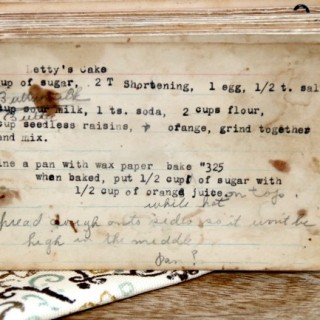 Letty's Cake
up of sugar, 2 T Shortening, 1 egg, 1/2 t. sal
up sour milk, 1 ts. soda, 2 cups flour,
cup seedless raisins, + orange, grind together
and mix.
ine a pan with wax paper bake "325
when baked, put 1/2 cup of sugar with
1/2 cup of orange juice. on top
while hot
pread dough onto sides so it wont be
high in the middle